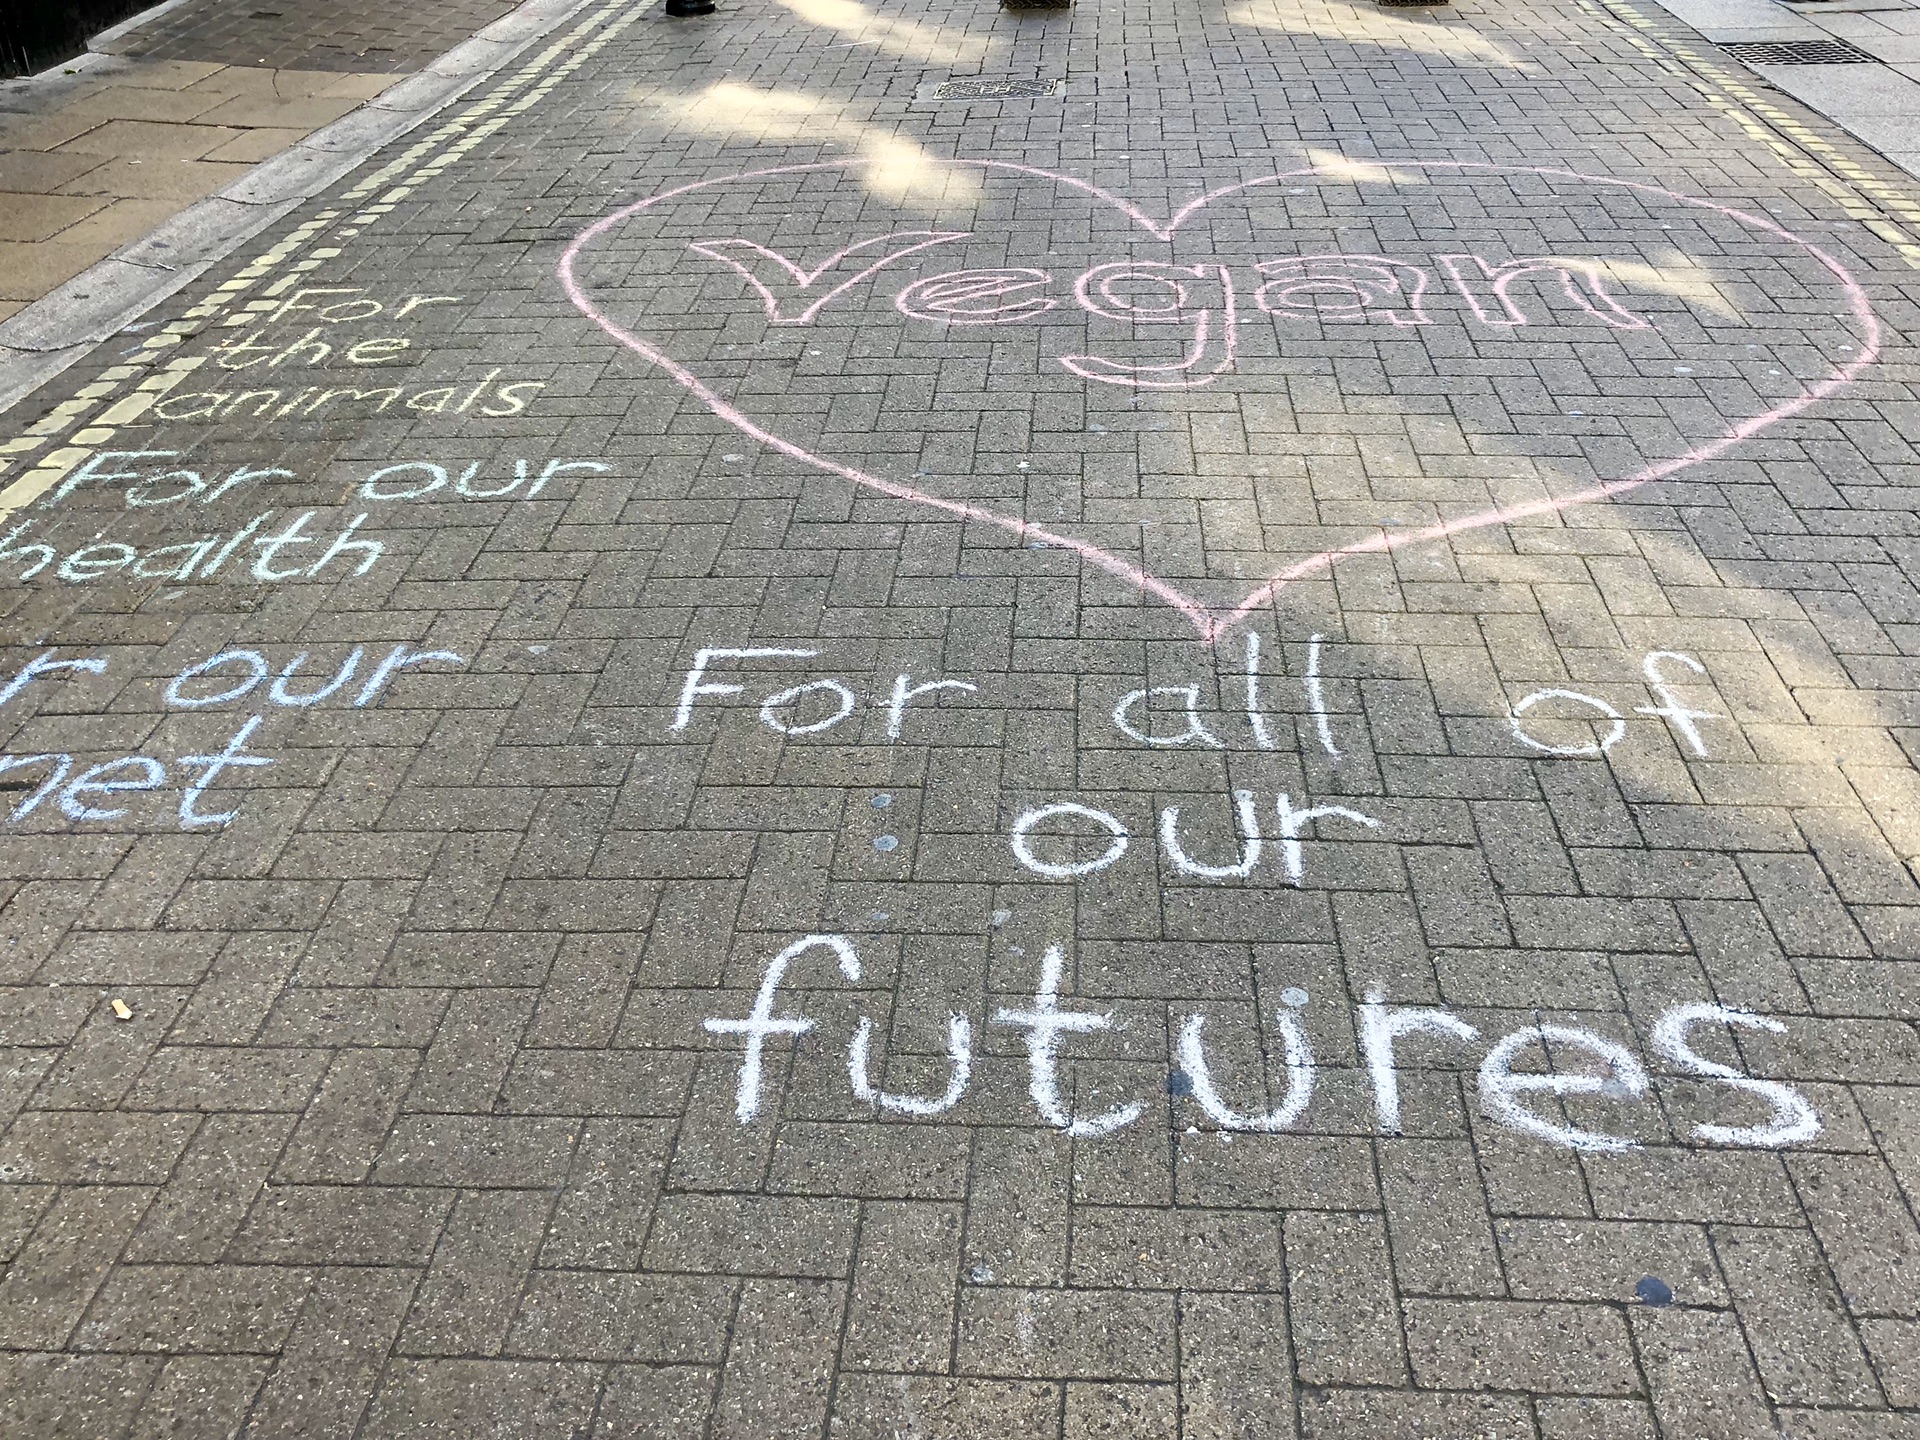 Vegan
For
the
animals
For our
health
r our
net
For all of
our
futures